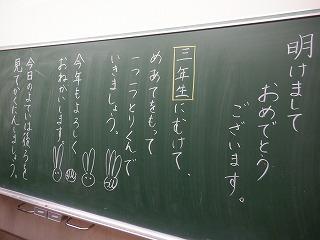 明けまして
おめでとう
ございます。
三年生にむけて、
めあてをもって
一つ一つとりくんで
いきましょう。
今年もよろしく
おねがいします。
今日のよていは後ろを
見てかくにんしましょう。